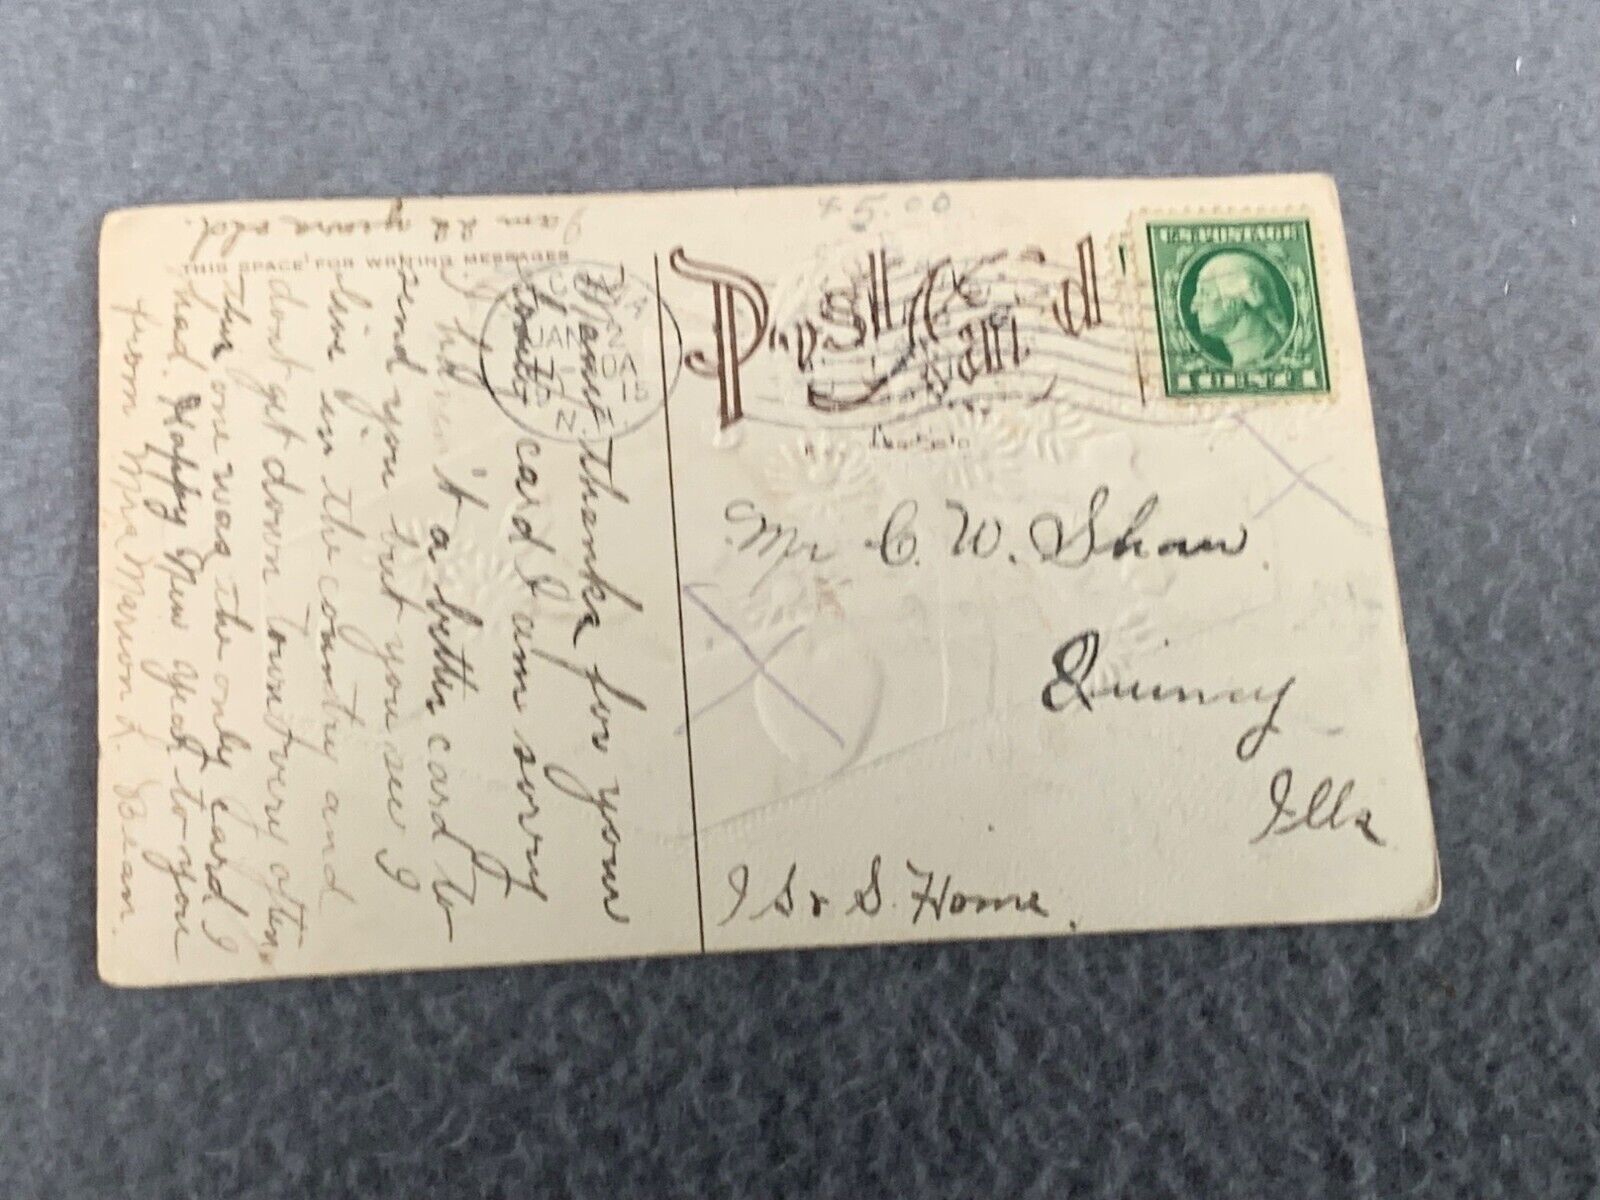 $5.00
Post Card
THIS SPACE FOR WRITING MESSAGES
JAN
1915
ONE CENT
Mr C. W. Shaw
Quincy
Ills
I S & S. Home.
Many Thanks for your
lovely card I am sorry
I haven't a better card to
send you but you see I
live in the country and
dont get down town very often
This one was the only card I
had. Happy New Year to you
from Miss Marion L. Bean.
I am 22 years old.